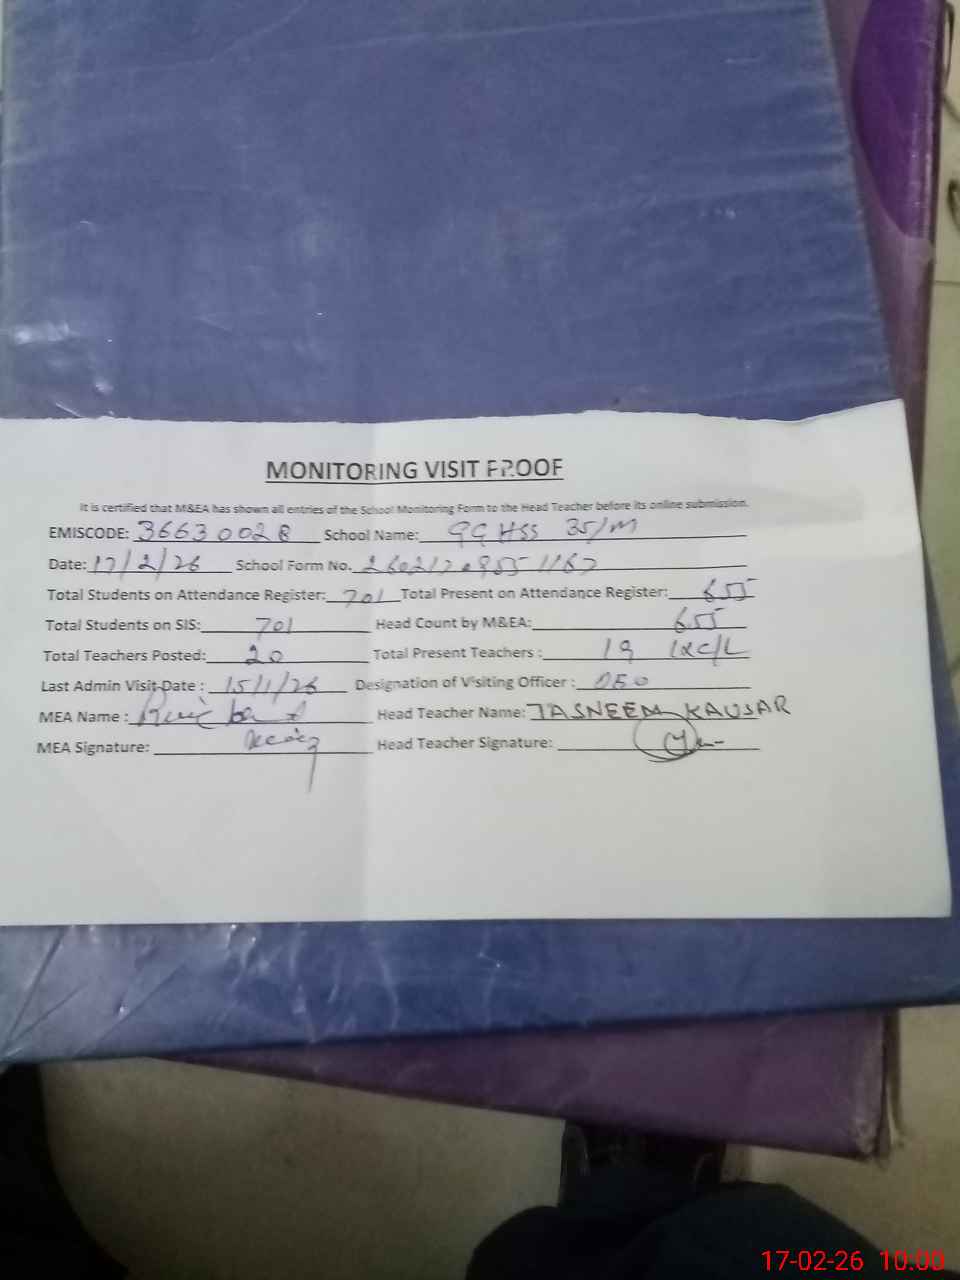 MONITORING VISIT PROOF
It is certified that M&EA has shown all entries of the School Monitoring Form to the Head Teacher before its online submission.
EMISCODE: 36630028 School Name: GGHSS 35/M
Date: 17/2/26 School Form No.
Total Students on Attendance Register: 701 Total Present on Attendance Register: 655
Total Students on SIS: 701 Head Count by M&EA: 655
Total Teachers Posted: 20 Total Present Teachers : 19 1xC/L
Last Admin Visit Date : 15/1/26 Designation of Visiting Officer : DEO
MEA Name : Head Teacher Name: TASNEEM KAUSAR
MEA Signature: Head Teacher Signature:
17-02-26 10:00